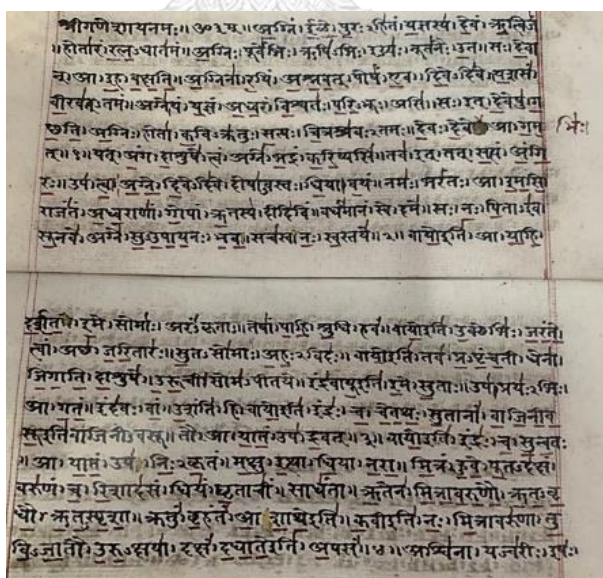 श्रीगणेशायनमः॥ॐ३म्॥अग्निं।ईळे।पुरःऽहितं।यज्ञस्य।देवं।ऋत्विजं
॥होतारं।रत्नऽधातमं॥अग्निः।पूर्वेभिः।ऋषिऽभिः।ईड्यः।नूतनैः।उत॥सः।देवा
न्।आ।इह।वक्षति॥अग्निना।रयिं।अश्नवत्।पोषं।एव।दिवेऽदिवे॥यशसं
वीरवत्ऽतमं॥अग्ने।यं।यज्ञं।अध्वरं।विश्वतः।परिऽभूः।असि॥सः।इत्।देवेषु।ग
च्छति॥अग्निः।होता।कविऽक्रतुः।सत्यः।चित्रश्रवःऽतमः॥देवः।देवे आ।गम भिः।
त्॥१॥यत्।अंग।दाशुषे।त्वं।अग्ने।भद्रं।करिष्यसि॥तव।इत्।तत्।सत्यं।अंगि
रः॥उप।त्वा।अग्ने।दिवेऽदिवे।दोषाऽवस्तः।धिया।वयं॥नमः।भरंतः।आ।इमसि
राजंतं।अध्वराणां।गोपां।ऋतस्य।दीदिविं॥वर्धमानं।स्वे।दमे॥सः।नः।पिताऽइव
सूनवे।अग्ने।सुऽउपायनः।भव॥सचस्व।नः।स्वस्तये॥२॥वायोइति।आ।याहि।
दर्शत।इमे।सोमाः।अरंऽकृताः॥तेषां।पाहि।श्रुधि।हवं॥वायोइति।उक्थेभिः।जरंते
त्वां।अच्छ।जरितारः॥सुतऽसोमाः।अहःऽविदः॥वायोइति।तव।प्रऽपृंचती।धेना
जिगाति।दाशुषे॥उरूची।सोमऽपीतये॥इंद्रवायूइति।इमे।सुताः॥उप।प्रयःऽभिः।
आ।गतं॥इंदवः।वां।उशंति।हि॥वायोइति।इंद्रः।च।चेतथः।सुतानां।वाजिनीव
सूइतिवाजिनीऽवसू॥तौ।आ।यातं।उप।द्रवत्॥३॥वायोइति।इंद्रः।च।सुन्वतः
॥आ।यातं।उप।निःऽकृतं॥मक्षु।इत्था।धिया।नरा॥मित्रं।हुवे।पूतऽदक्षं
वरुणं।च।रिशादसं॥धियं।घृताचीं।साधंता॥ऋतेन।मित्रावरुणौ।ऋतऽवृ
धौ।ऋतऽस्पृशा॥क्रतुं।बृहंतं।आशाथेइति॥कवीइति।नः।मित्रावरुणा।तु
विऽजातौ।उरुऽक्षया॥दक्षं।दधातेइति।अपसं॥४॥अश्विना।यज्वरीः।इषः।